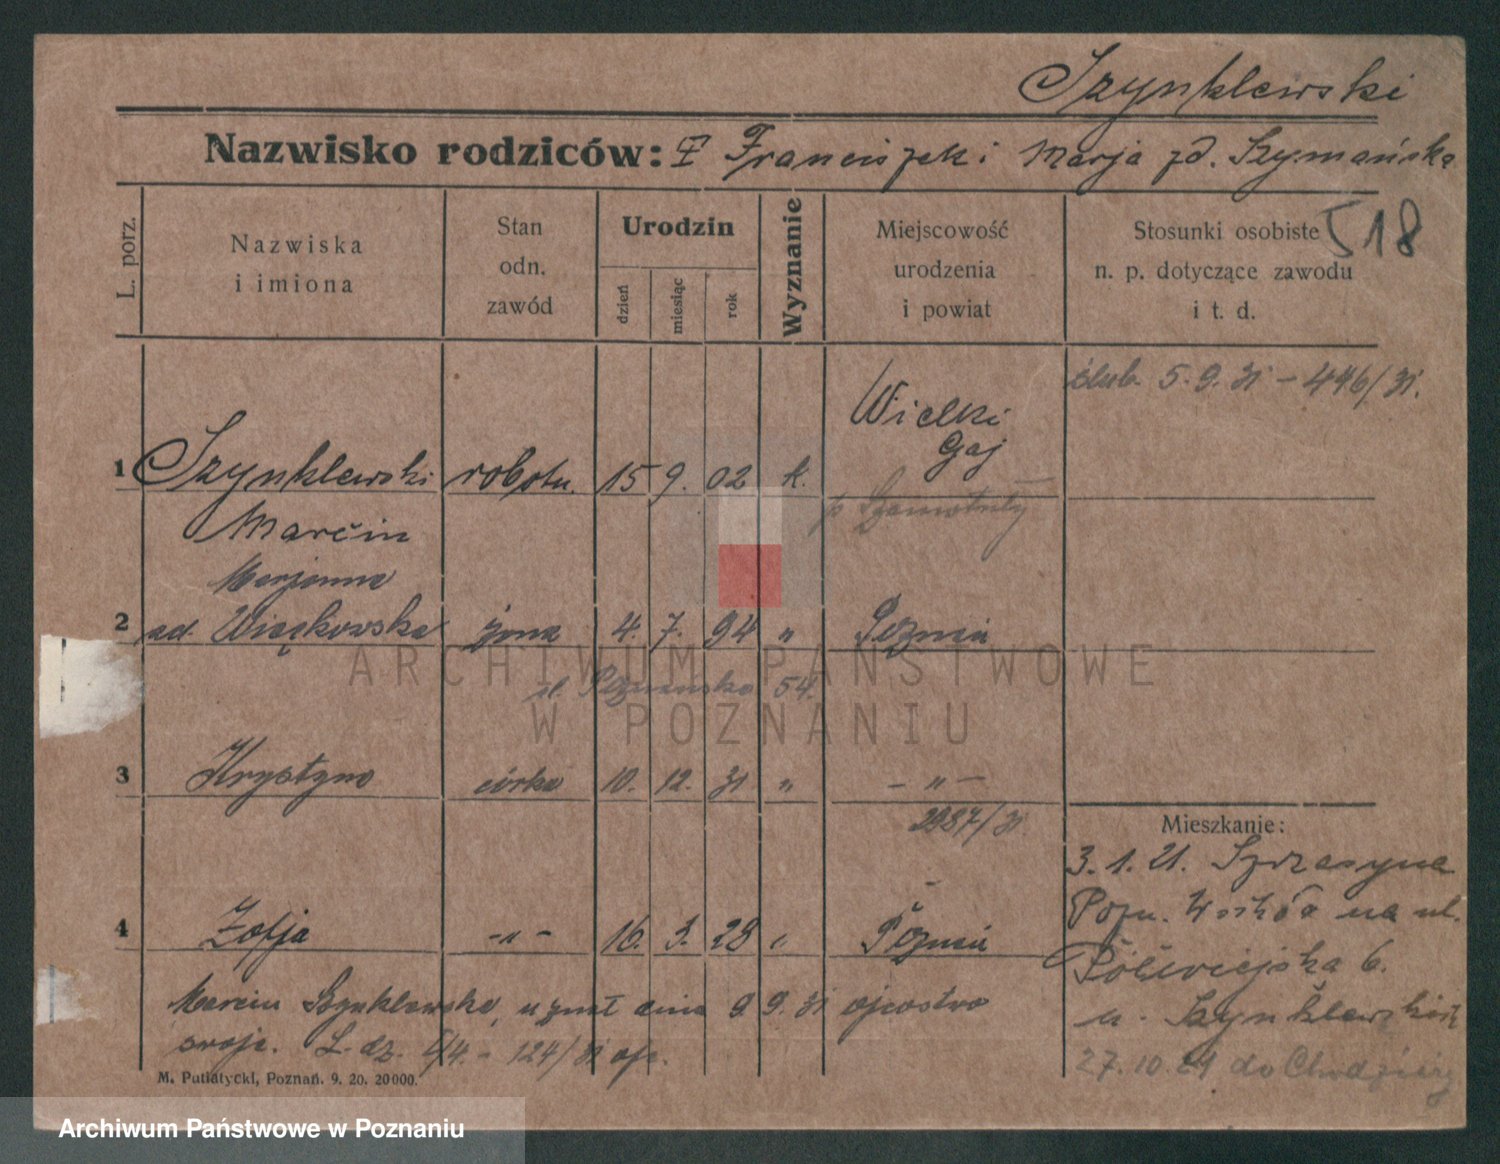 Szynklewski
Nazwisko rodziców: Franciszek i Marja zd. Szymańska
518
L. porz.
Nazwiska
i imiona
Stan
odn.
zawód
Urodzin
dzień
miesiąc
rok
Wyznanie
Miejscowość
urodzenia
i powiat
Stosunki osobiste
n. p. dotyczące zawodu
i t. d.
ślub. 5.9.31 - 446/31.
1 Szynklewski robotn. 15 9. 02 k. Wielki
Gaj
p Szamotuły
Marcin
Marjanna
2 zd. Więckowska żona 4. 7. 94 " Poznań
ul. Poznańska 54.
3 Krystyna córka 10. 12. 31 " - " -
2987/31.
4 Zofja - " - 16. 3. 28 " Poznań
Marcin Szynklewski, uznał dnia 9 9. 31 ojcostwo
swoje. L. dz. - 124/31
Mieszkanie:
3.1.21.
Pozn. na ul.
Półwiejska 6.
u. Szynklewskich
27.10.21 do Chodzieży
M. Putiatycki, Poznań. 9. 20. 20000.
ARCHIWUM PAŃSTWOWE
W POZNANIU
Archiwum Państwowe w Poznaniu